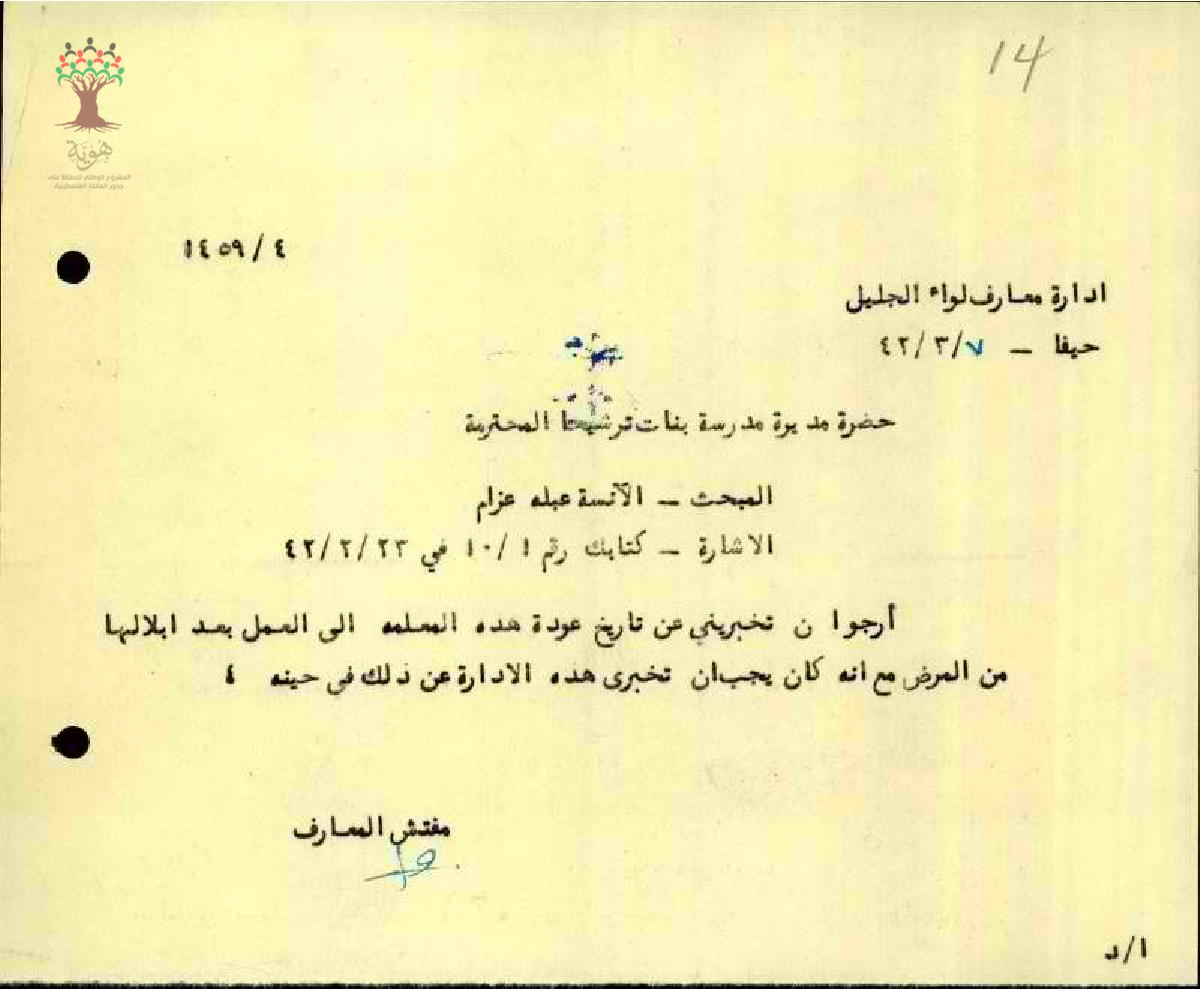 14
هوية
المشروع الوطني للحفاظ على
جذور العائلة الفلسطينية
١٤٥٩/٤
ادارة معارف لواء الجليل
حيفا – ٤٢/٣/٧
حضرة مديرة مدرسة بنات ترشيحا المحترمة
المبحث – الآنسة عبله عزام
الاشارة – كتابك رقم ١٠/١ في ٤٢/٢/٢٣
أرجوا ن تخبريني عن تاريخ عودة هذه المعلمه الى العمل بعد ابلالها
من المرض مع انه كان يجب ان تخبرى هذه الادارة عن ذلك فى حينه ،
مفتش المعارف
ا/د